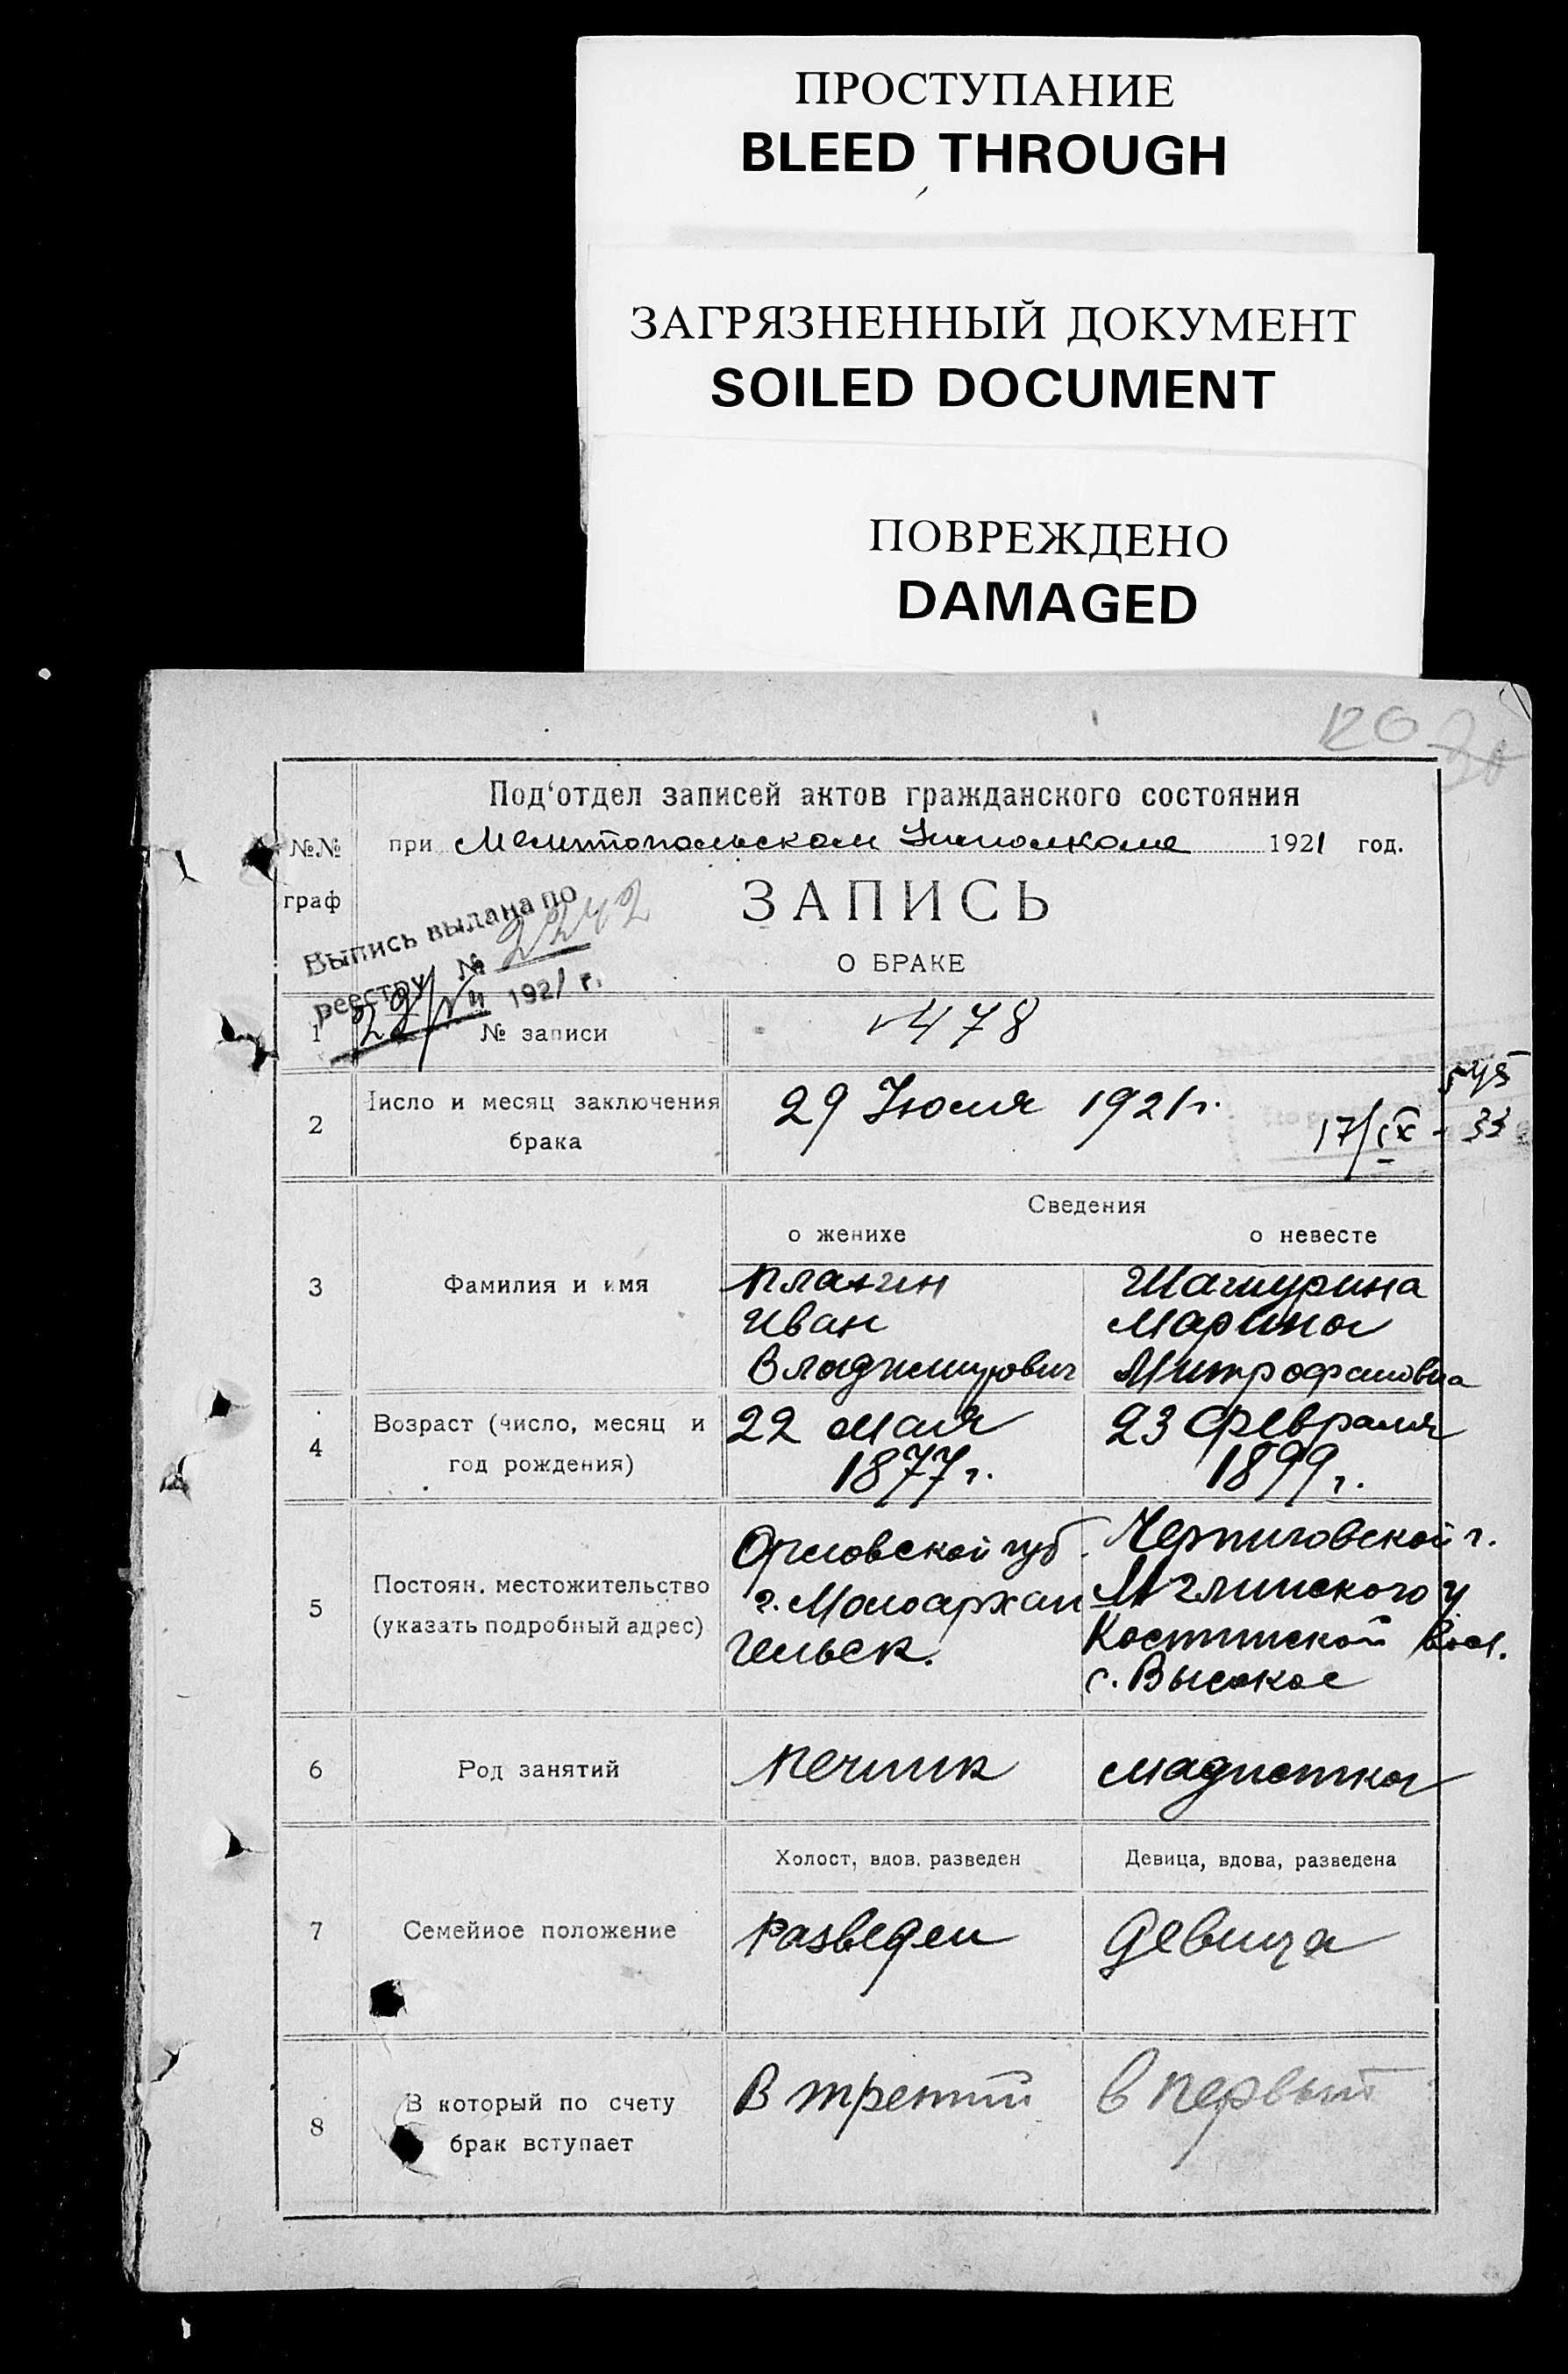 ПРОСТУПАНИЕ
BLEED THROUGH
ЗАГРЯЗНЕННЫЙ ДОКУМЕНТ
SOILED DOCUMENT
ПОВРЕЖДЕНО
DAMAGED
120
№№
граф
Под‘отдел записей актов гражданского состояния
при Мелитопольском Исполкоме 1921 год.
ЗАПИСЬ
О БРАКЕ
Выпись выдана по
реестру № 2242
22/VII 1921 г.
1 № записи 478
2 Число и месяц заключения
брака
29 Июля 1921 г.
545
17/IX - 33
Сведения
о женихе о невесте
3 Фамилия и имя
Плахин
Иван
Владимирович
Шашурина
Марина
Митрофановна
4 Возраст (число, месяц и
год рождения)
22 мая
1877 г.
23 февраля
1899 г.
5 Постоян. местожительство
(указать подробный адрес)
Орловской губ.
г. Малоархан
гельск.
Черниговской г.
Мглинского у
Костинской Вол.
с. Высокое
6 Род занятий
печник
мадистка
7 Семейное положение
Холост, вдов. разведен
Девица, вдова, разведена
разведен
девица
8 В который по счету
брак вступает
В третий
в первый